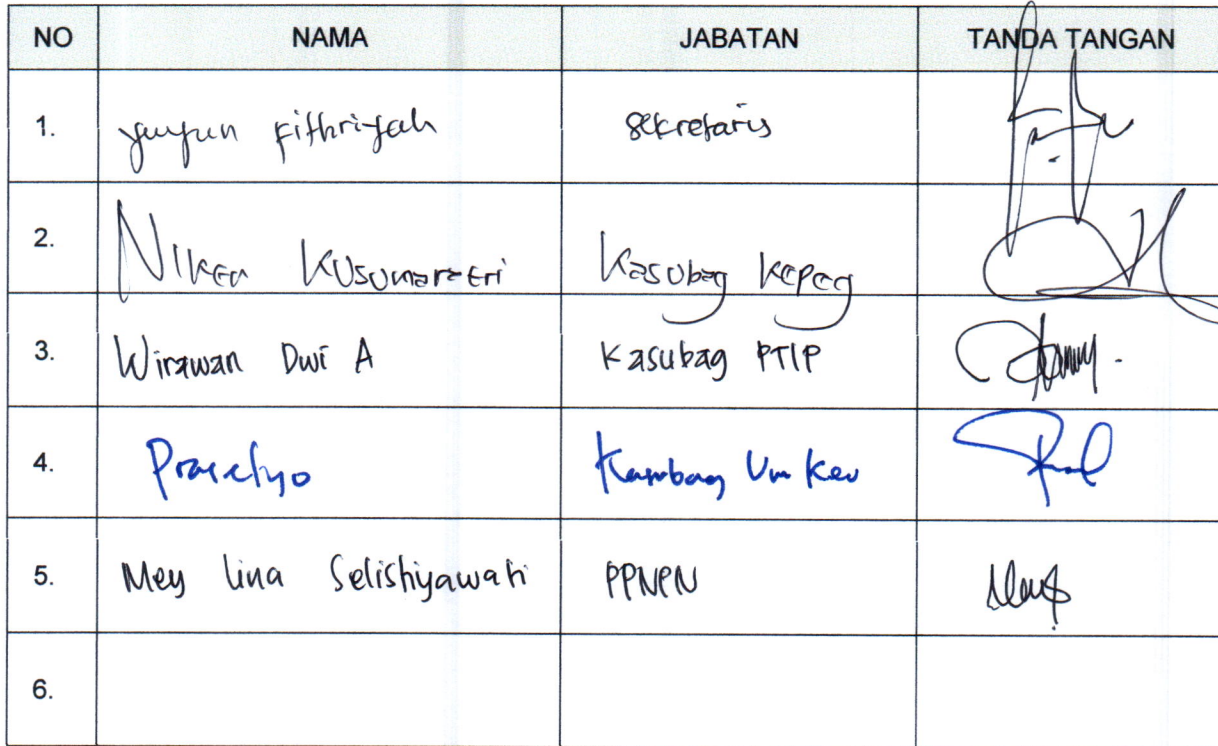 NO NAMA JABATAN TANDA TANGAN
1. yuyun Fithriyah sekretaris
2. Niken Kusumarastri Kasubag Kepeg
3. Wirawan Dwi A Kasubag PTIP
4. Prasetyo Kasubag Um Keu
5. Mey Lina Selishiyawati PPNPN
6.